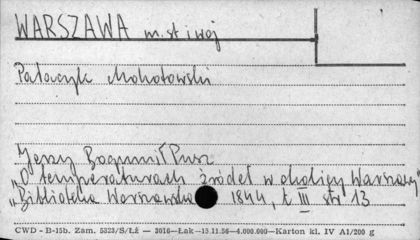 WARSZAWA m. st i woj
Pałacyk Mokotowski
Jerzy Bogumił Pusz
"O temperaturach źródeł w okolicy Warszawy"
"Biblioteka Warszawska" 1844, t. III str 13
CWD - B-15b. Zam. 5323/S/ŁŻ — 3016—Łak—13.11.56—4.000.000—Karton kl. IV A1/200 g